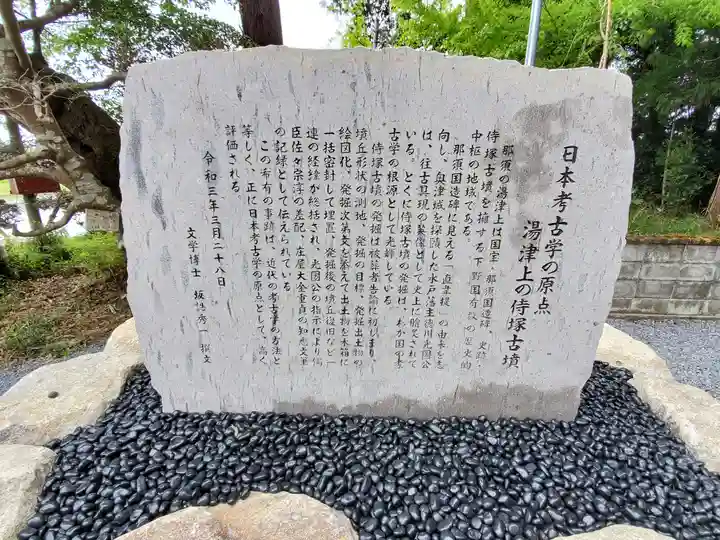 日本考古学の原点
湯津上の侍塚古墳
那須の湯津上は国宝、那須国造碑、史跡、
侍塚古墳を擁する下野国有数の歴史的
中枢の地域である。
那須国造碑に見える「直韋提」の由来を志
向し、奥津城を探賾した水戸藩主徳川光圀公
は、往古具現の英傑として史上に膾炙されて
いる。とくに侍塚古墳の発掘は、わが国の考
古学の根源として光輝している。
侍塚古墳の発掘は被葬者告諭に初しまり、
墳丘形状の測地、発掘の目標、発掘出土物の
絵図化、発掘次第文を添えて出土物を木箱に
一括密封して埋置、発掘後の墳丘復旧など一
連の経緯が総括され、光圀公の指示により儒
臣佐々宗淳の差配、庄屋大金重貞の知恵文筆
の記録として伝えられている。
この希有の事跡は、近代の考古学の方法と
等しく、正に日本考古学の原点として、高く
評価される。
令和三年三月二十八日
文学博士 坂詰秀一 撰文